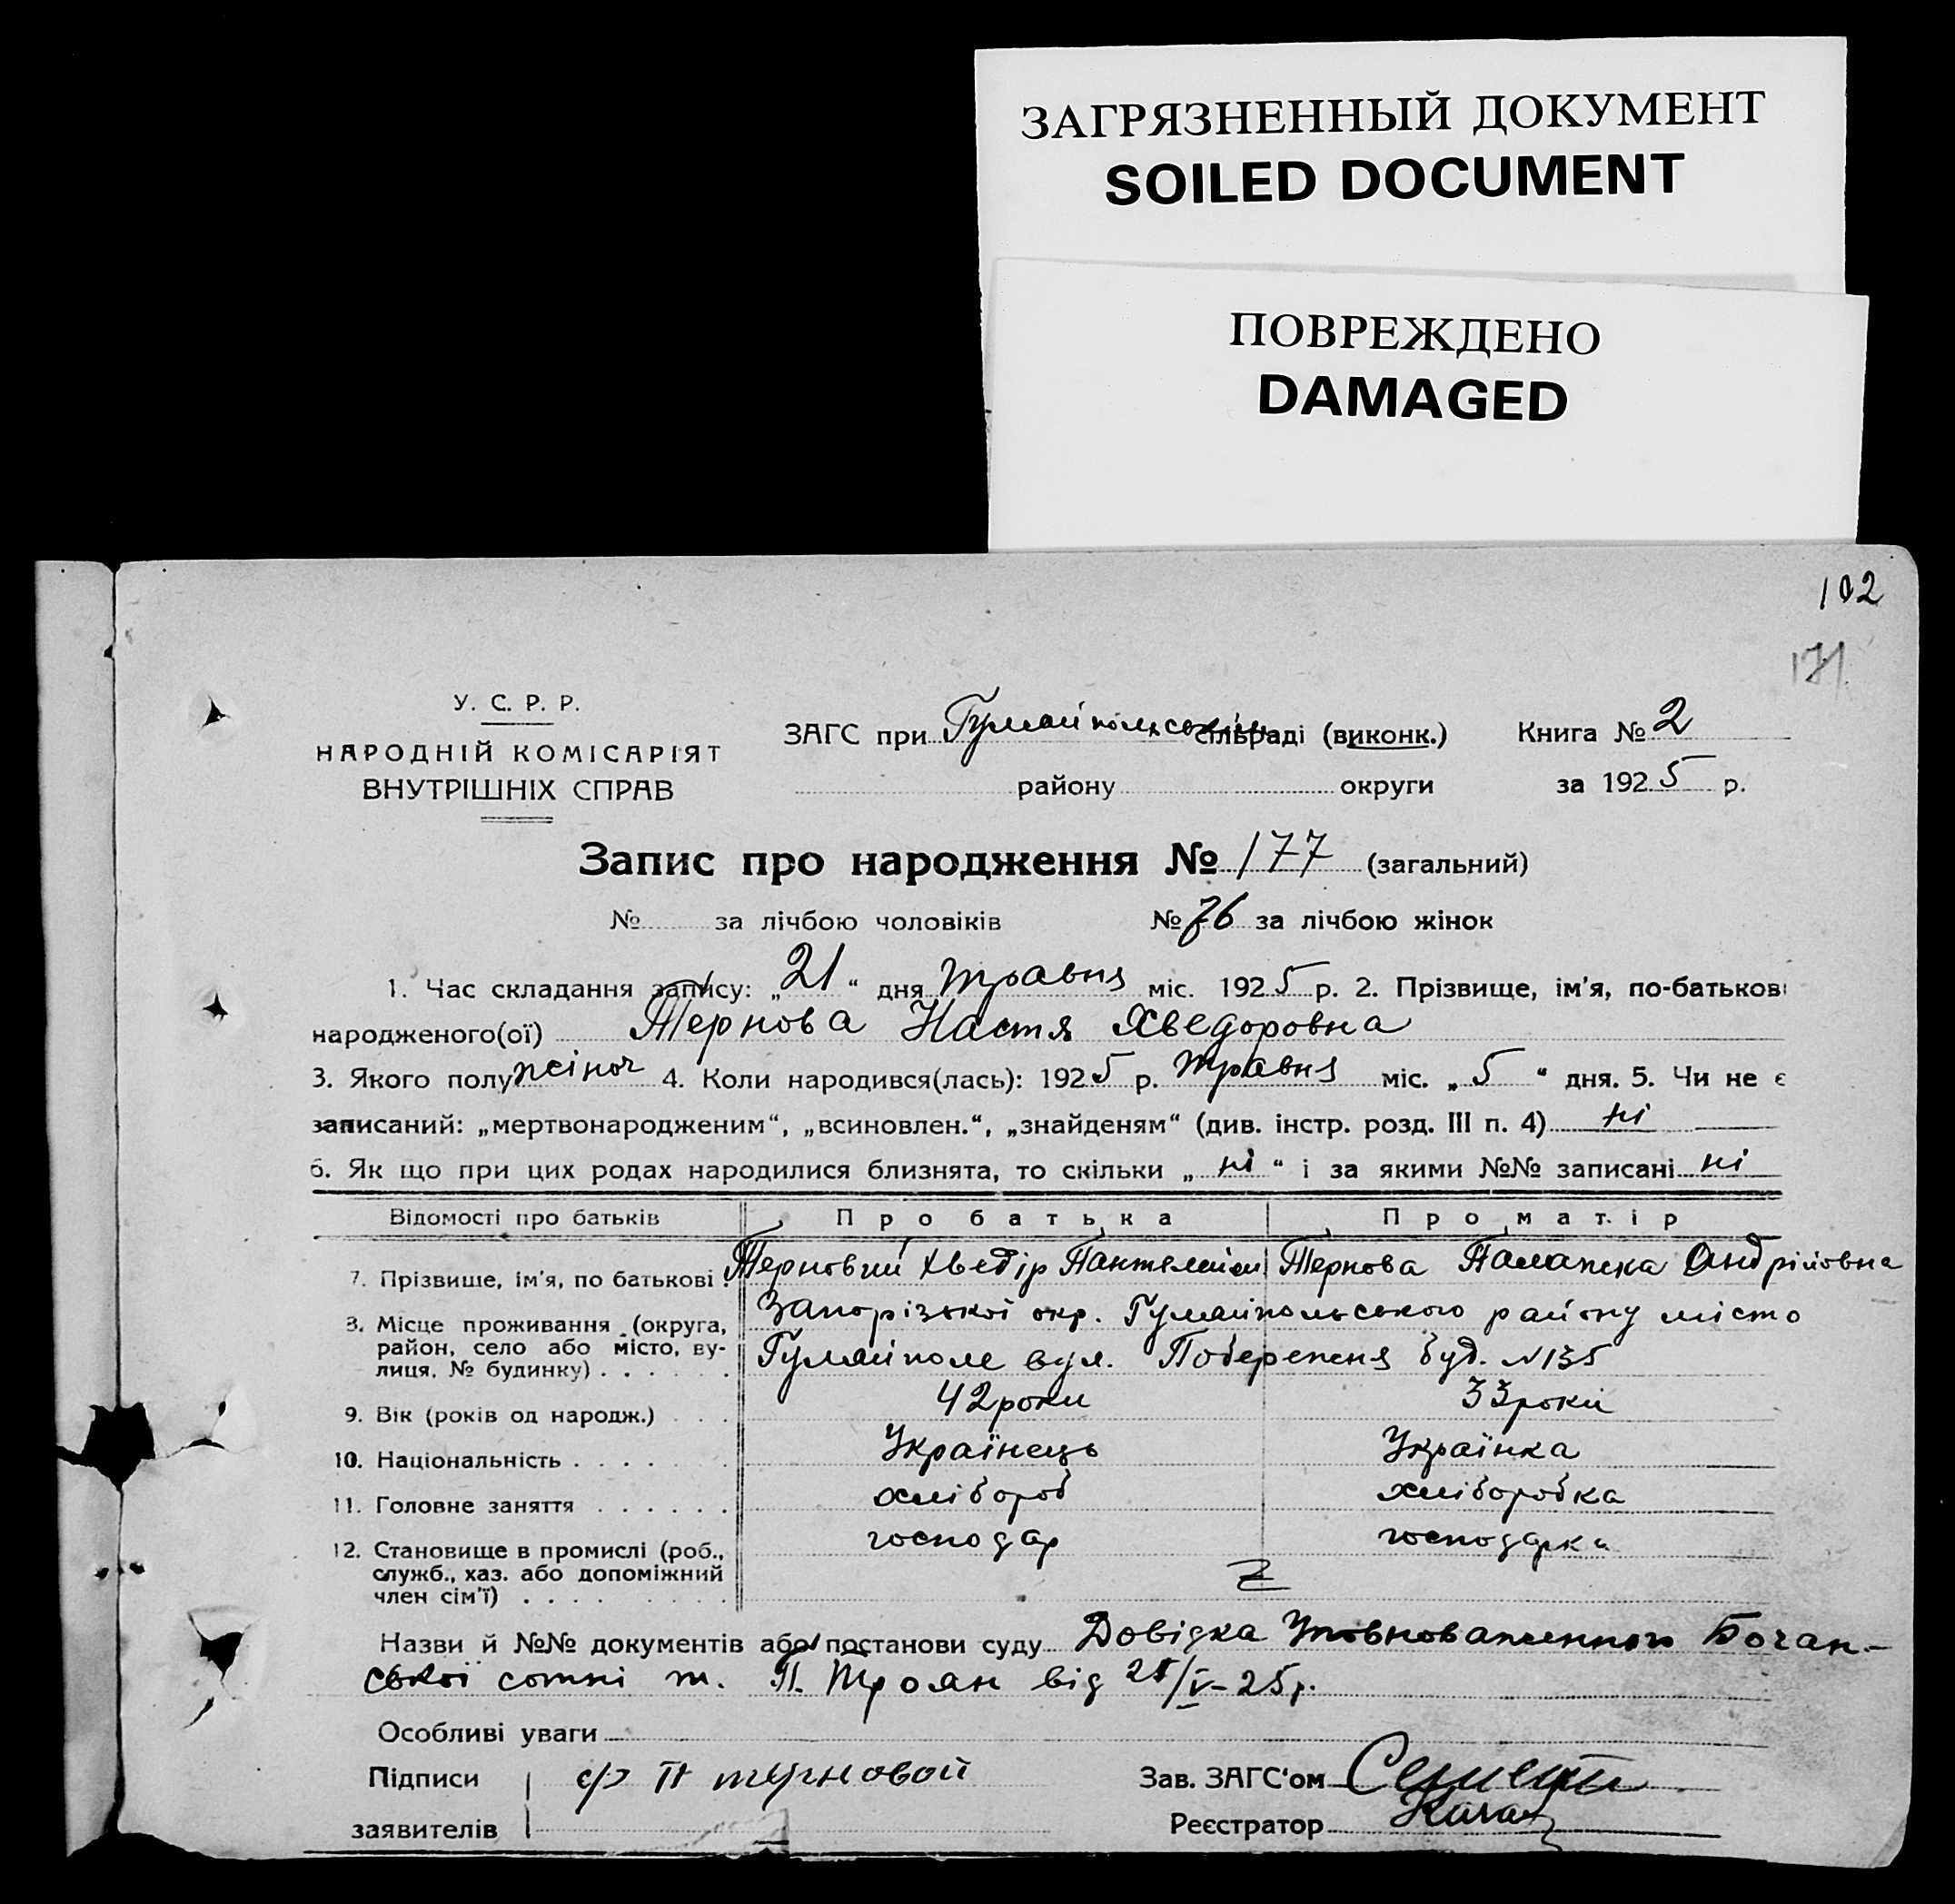 ЗАГРЯЗНЕННЫЙ ДОКУМЕНТ
SOILED DOCUMENT
ПОВРЕЖДЕНО
DAMAGED
102
171
У. С. Р. Р.
НАРОДНІЙ КОМІСАРІЯТ
ВНУТРІШНІХ СПРАВ
ЗАГС при Гуляйпольськім сільраді (виконк.) Книга № 2
району округи за 1925 р.
Запис про народження № 177 (загальний)
№ за лічбою чоловіків № 76 за лічбою жінок
1. Час складання запису: „21“ дня травня міс. 1925 р. 2. Прізвище, ім'я, по-батькові
народженого(ої) Тернова Настя Хведоровна
3. Якого полу жіноч 4. Коли народився(лась): 1925 р. травня міс. „5“ дня. 5. Чи не є
записаний: „мертвонародженим“, „всиновлен.“, „знайденям“ (див. інстр. розд. III п. 4) ні
6. Як що при цих родах народилися близнята, то скільки „ні“ і за якими №№ записані ні
Відомості про батьків Про батька Про матір
7. Прізвище, ім'я, по батькові. Терновий Хведір Пантелейм Тернова Палажка Андріївна
8. Місце проживання (округа, район, село або місто, вулиця, № будинку) Запорізької окр. Гуляйпольського району місто
Гуляйполе вул. Побережня буд. №135
9. Вік (років од народж.) 42 роки 33 роки
10. Національність Українець Українка
11. Головне заняття хлібороб хліборобка
12. Становище в промислі (роб., господар господарка
служб., хаз. або допоміжний
член сім'ї)
Назви й №№ документів або постанови суду Довідка Уповноваженного Бочан-
ської сотні т. П. Троян від 21/V-25 р.
Особливі уваги
Підписи ф П терновой Зав. ЗАГС'ом
заявителів Реєстратор